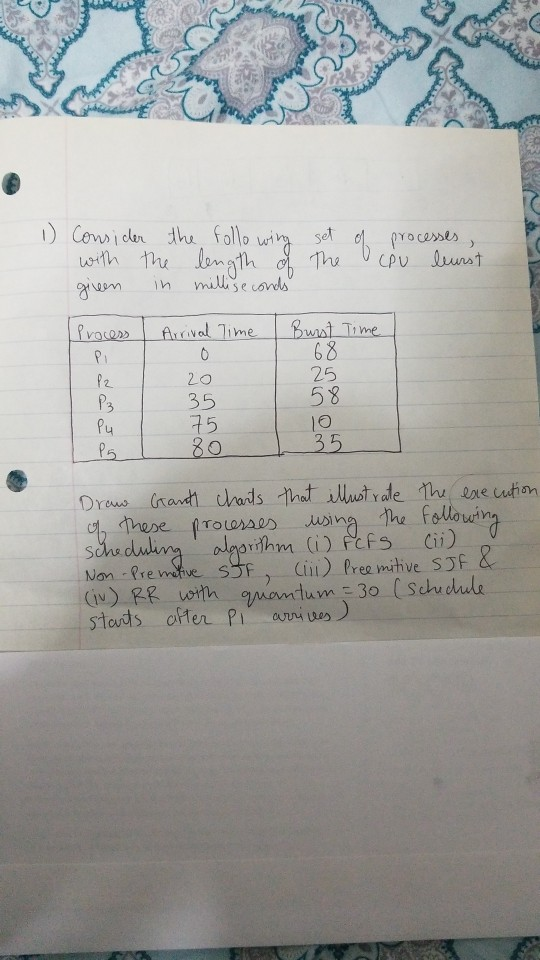 1) Consider the following set of processes,
with the length of the CPU burst
given in milliseconds
Process Arrival Time Burst Time
P1 0 68
P2 20 25
P3 35 58
P4 75 10
P5 80 35
Draw Grantt charts that illustrate the execution
of these processes using the following
scheduling algorithm (i) FCFS (ii)
Non-Premetive SJF, (iii) Preemitive SJF &
(iv) RR with quantum = 30 (Schedule
starts after P1 arrives)